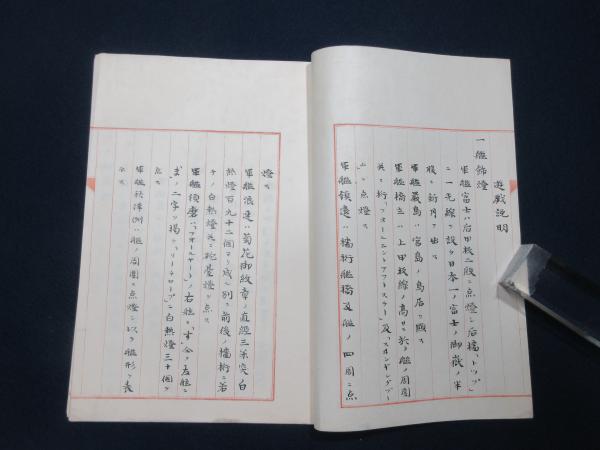 遊戯説明
一艦飾燈
軍艦富士ハ后甲板ニ点燈シ后檣「トップ」
ニ一光線ヲ設ケ日本一ノ富士ノ御嶽ノ半
腹ニ新月ヲ出ス
軍艦厳島ハ宮島ノ鳥居ヲ賦ス
軍艦橋立ハ上甲板線ノ高サニ於テ艦ノ周囲
及ヒ桁「フオールエンドアフトステー」及「スイギングブー
ム」ニ点燈ス
軍艦鎮遠ハ檣桁艦橋及艦ノ四周ニ点
燈ス
軍艦浪速ハ菊花御紋章ノ直径三米突白
熱燈百九十二個ヨリ成ル別ニ前後ノ檣桁ニ若
干ノ白熱燈及ヒ砲台燈ヲ点ス
軍艦須磨ハ「フオールヤード」ノ右舷ニ「す」仝ノ左舷ニ
「ま」ノ二字ヲ掲ケ「リーチロープ」ニ白熱燈三十個ヲ
点ス
軍艦秋津洲ハ艦ノ周囲ニ点燈シ以テ艦形ヲ表
ハス